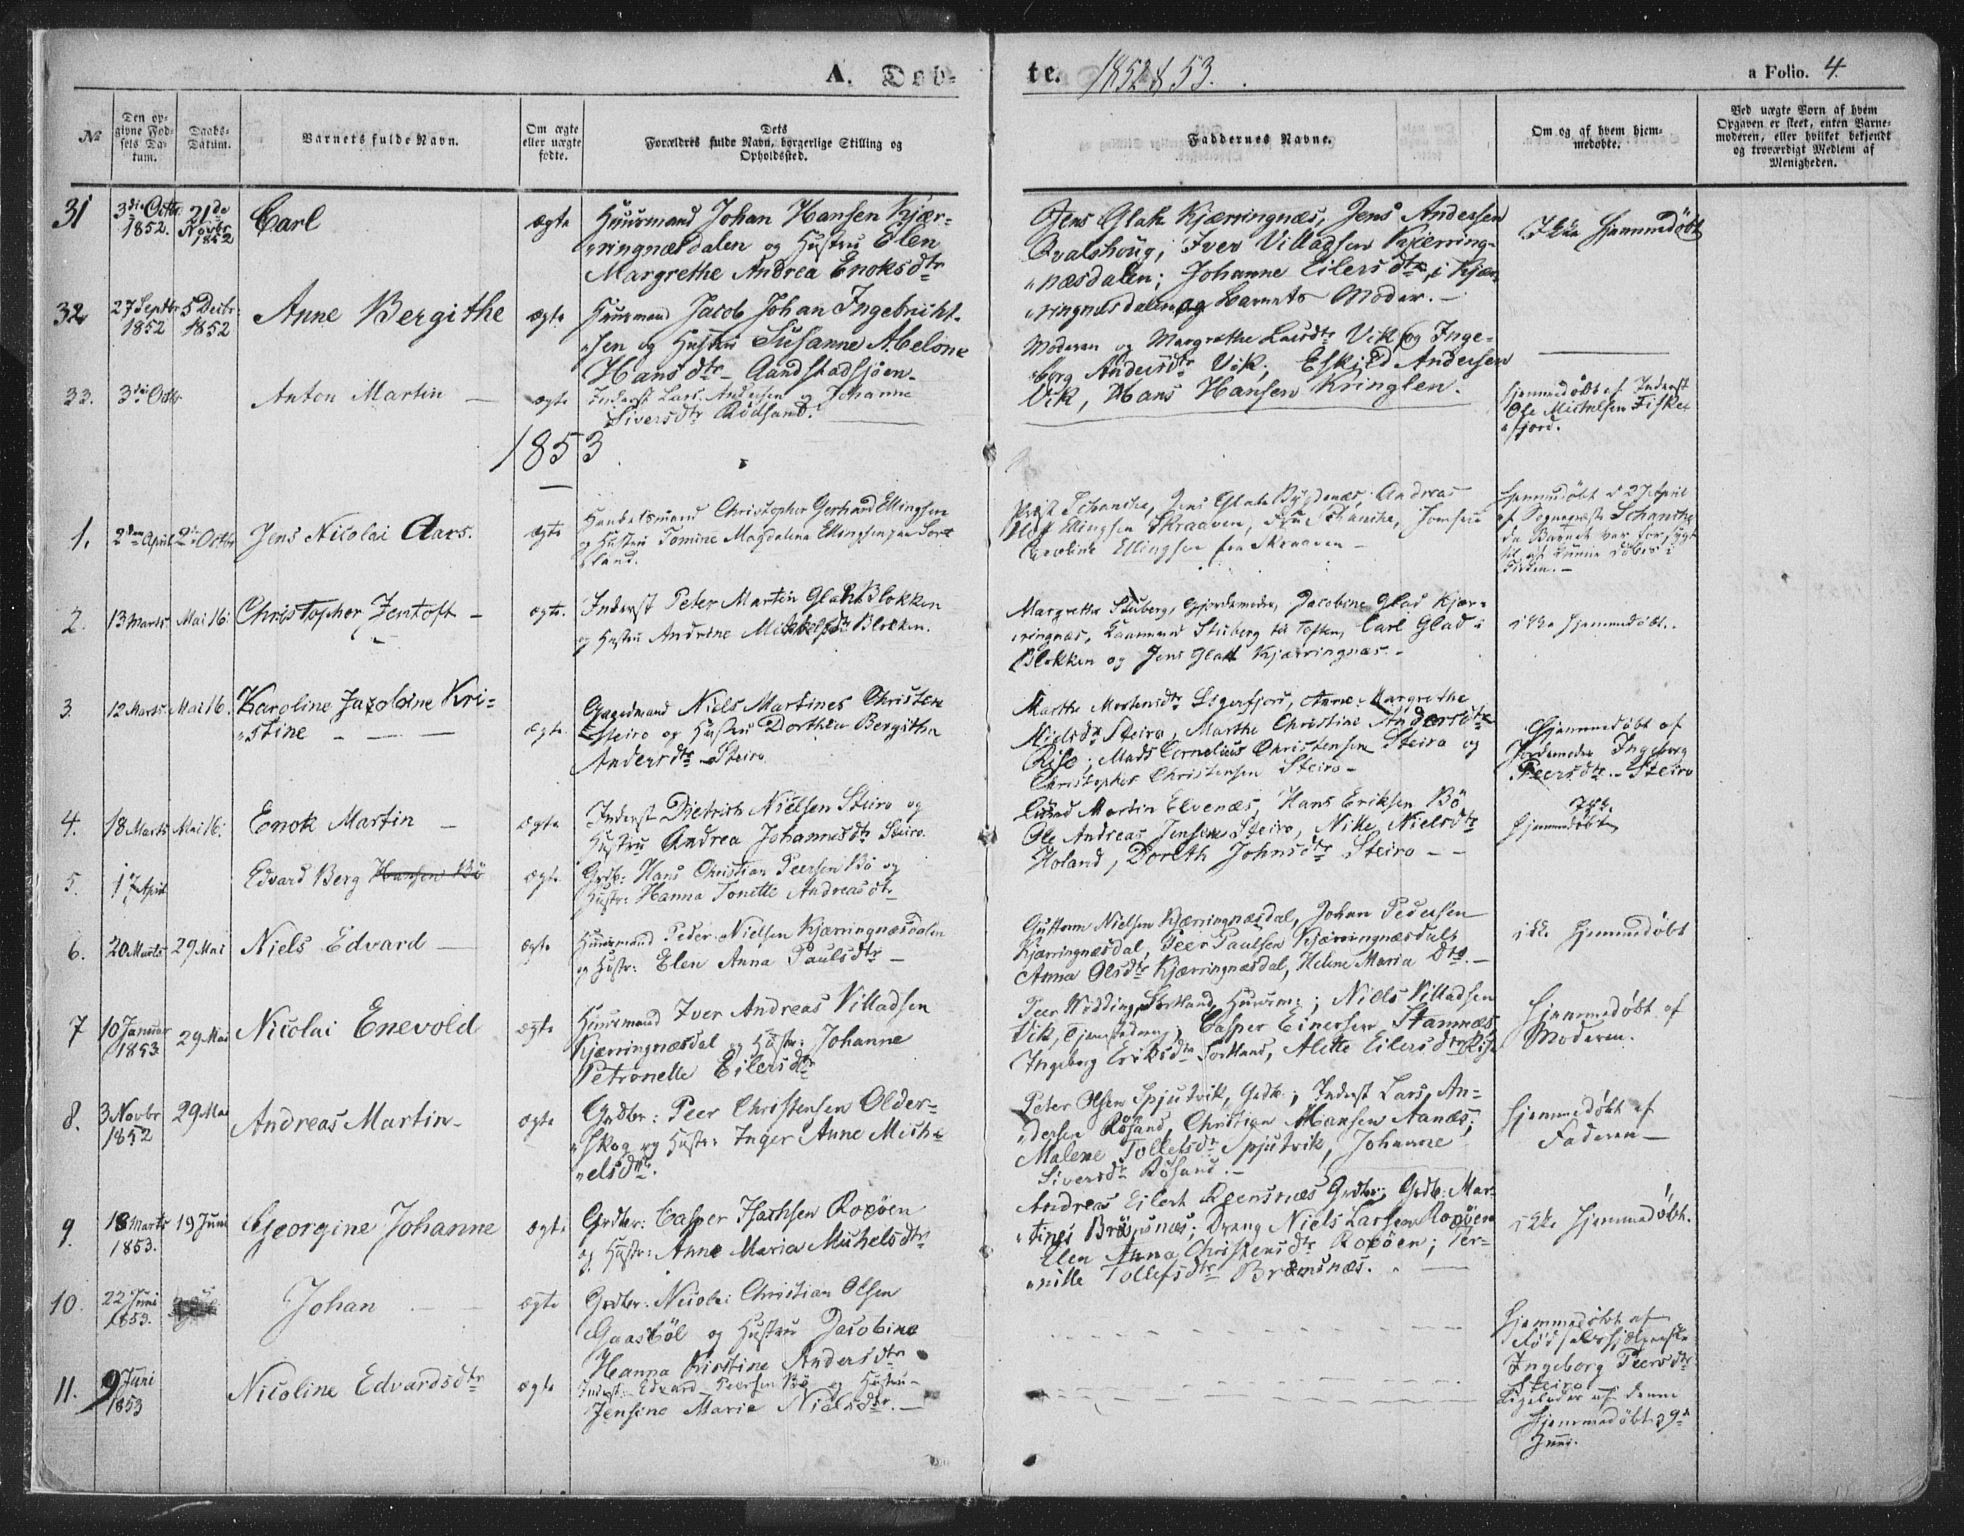 A. Døb-
te. 1852 & 53.
a Folio. 4.
№
Den op-
givne Fød-
sels Da-
tum.
Daabs-
Datum.
Barnets fulde Navn.
Om ægte
eller uægte
fødte.
Dets
Forældres fulde Navn, borgerlige Stilling og
Opholdssted.
Faddernes Navne.
Om og af hvem hjem-
medøbte.
Ved uægte Børn af hvem
Opgaven er skeet, enten Barne-
moderen, eller hvilket bekjendt
og troværdigt Medlem af
Menigheden.
31
3die Octbr
1852.
21de
Novbr
1852
Carl
ægte
Huusmand Johan Hansen Kjær-
ringnæsdalen og Hustru Elen
Margrethe Andrea Enoksdtr
Jens Glad Kjærringnæs, Jens Andersen
Qvalshoug, Iver Villadsen Kjerring-
næsdalen; Johanne Eilersdtr i Kjær-
ringnæsdalen og Barnets Moder. —
Ikke Hjemmedøbt
32
27 Septbr
1852
5 Decbr
1852
Anne Bergithe
ægte
Huusmand Jacob Johan Ingebricht-
sen og Hustru Susanne Abelone
Hansdtr — Aandstadsjøen.
Moderen og Margrethe Larsdtr Vik, og Inge-
borg Andersdtr Vik, Eskild Andersen
Vik, Hans Hansen Kringlen.
33.
3die Octbr
Anton Martin —
ægte
Inderst Lars Andersen og Johanne
Siversdtr Rødsand.
Hjemmedøbt af Inderst
Ole Michelsen Fiske-
fjord.
1853
1.
2den April
2den Octbr
Jens Nicolai Aars.
ægte
Handelsmand Christopher Gerhard Ellingsen
og Hustru Tomine Magdalena Ellingsen paa Sort-
land.
Præst Schanche, Jens Glad Bygdenæs, Andreas
Ellingsen Skraaven, Fru Schanche, Jomfru
Caroline Ellingsen fra Skraaven —
Hjemmedøbt d 27 April
af Sognepræst Schanche
da Barnet var for sygt
til at kunne døbes i
Kirken. —
2.
13 Marts
Mai 16.
Christopher Jentoft —
ægte.
Inderst Peter Martin Glad Blokken
og Hustru Andrine Mikkelsdtr Blokken.
Margrethe Stuberg, Gjordemoder, Jacobine Glad Kjær-
ringnæs, Laarmand Stuberg til Toften, Carl Glad i
Blokken og Jens Glad Kjærringnæs. —
ikke Hjemmedøbt.
3.
12 Marts
Mai 16.
Karoline Jacobine Kri-
stine — — —
ægte
Gaardmand Niels Martines Christen
Steiro og Hustru Dorthea Bergitha
Andersdtr — Steiro
Marthe Mortensdtr Sigerfjord, Anne Margrethe
Nielsdtr Steiro, Marthe Christine Andersdtr
Rise; Mads Cornelius Christensen Steiro og
Christopher Christensen Steiro —
Hjemmedøbt af
Jordemoder Ingeborg
Peersdtr — Steiro
4.
18 Marts
Mai 16.
Enok Martin —
ægte
Inderst Dietrich Nielsen Steiro og
Hustru Andrea Johannesdtr Steiro.
Lund Martin Elvenæs, Hans Eriksen Bø
Ole Andreas Jensen Steiro, Nille Nielsdtr
Holand, Doreth Johnsdtr Steiro — —
Ikke
Hjemmedøbt
5.
17 April
Edvard Berg Hansen Bø
ægte
Grdb: Hans Christian Peersen Bø og
Hustr: Hanna Tonette Andreasdtr
6.
20 Marts
29 Mai
Niels Edvard —
ægte
Huusmand Peder Nielsen Kjærringnæsdalen
og Hustr: Elen Anna Paulsdtr —
Gustav Nielsen Kjærringnæsdal, Johan Pedersen
Kjærringnæsdal, Peer Paulsen Kjærringnæsdal,
Anna Olsdtr Kjærringnæsdal, Helene Maria Dto. —
ikke Hjemmedøbt
7
10 Januar
1853
29 Mai
Nicolai Enevold
ægte
Huusmand Iver Andreas Villadsen
Kjærringnæsdal og Hustr: Johanne
Petronelle Eilersdtr
Peer Widding Sortland, Huusm:; Niels Villadsen
Vik, Tjenestedreng; Casper Einersen Stamnæs
Ingeborg Eriksdtr Sortland, Alette Eilersdtr Rise
Hjemmedøbt af
Moderen.
8.
3 Novbr
1852
29 Mai
Andreas Martin —
ægte
Grdbr: Peer Christensen Older-
skog og Hustr: Inger Anne Mich-
elsdtr.
Peter Olsen Spjutvik, Grdb:; Inderst Lars An-
dersen Røsand, Christian Hansen Aanæs;
Malene Tollefsdtr Spjutvik, Johanne
Siversdtr Røsand. —
Hjemmedøbt af
Faderen —
9.
18 Marts
1853.
19 Juni
Georgine Johanne
ægte
Grdbr: Casper Isachsen Roxøen
og Hustr: Anne Maria Michelsdtr
Andreas Eilert Reensnæs Grdbr; Grdb: Mar-
tines Bremsnæs; Dreng Niels Larsen Roxøen
Elen Anna Christensdtr Roxøen; Per-
nille Tollefsdtr Bremsnæs. —
ikke Hjemmedøbt.
10.
22 Juni
1853.
Johan — —
ægte
Grdbr: Nicolai Christian Olsen
Gaasbøl og Hustru Jacobine
Hanna Kirstine Andersdtr
Hjemmedøbt af
Fødselshjælperske
Ingeborg Peersdtr
Steiro
11.
9 Juni
1853
Nicoline Edvardsdtr
ægte
Inderst: Edvard Peersen Bø og Hustru
Jensine Marie Nielsdtr. —
Ligeledes af denne
Hjemmedøbt 29de
Juni.